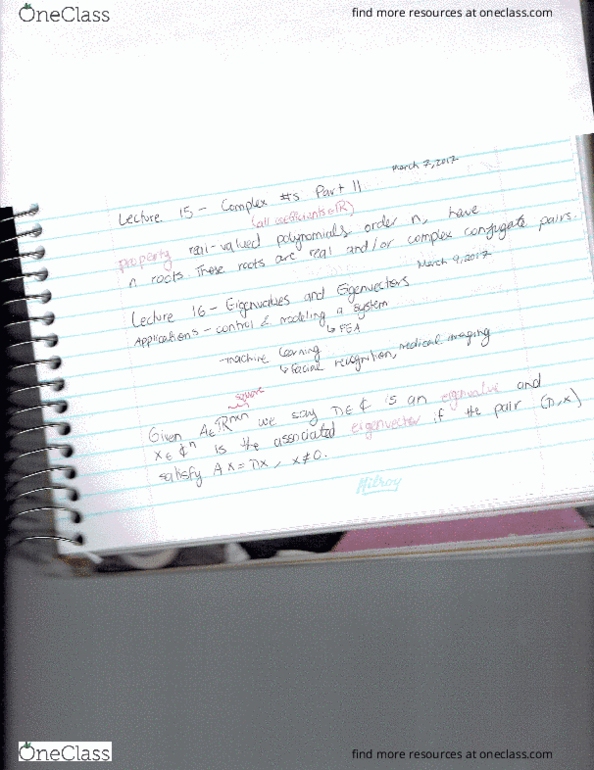 OneClass
find more resources at oneclass.com
March 7, 2017
Lecture 15 - Complex #s Part II
(all coefficients ∈ ℝ)
property real-valued polynomials order n, have
n roots these roots are real and/or complex conjugate pairs.
March 9, 2017
Lecture 16 - Eigenvalues and Eigenvectors
Applications - control & modeling a system
↳ FEA
- machine learning
↳ facial recognition, medical imaging
square
Given A ∈ ℝnxn we say D ∈ ₵ is an eigenvalue and
x ∈ ₵n is the associated eigenvector if the pair (D, x)
satisfy Ax = Dx, x ≠ 0.
Hilroy
OneClass
find more resources at oneclass.com